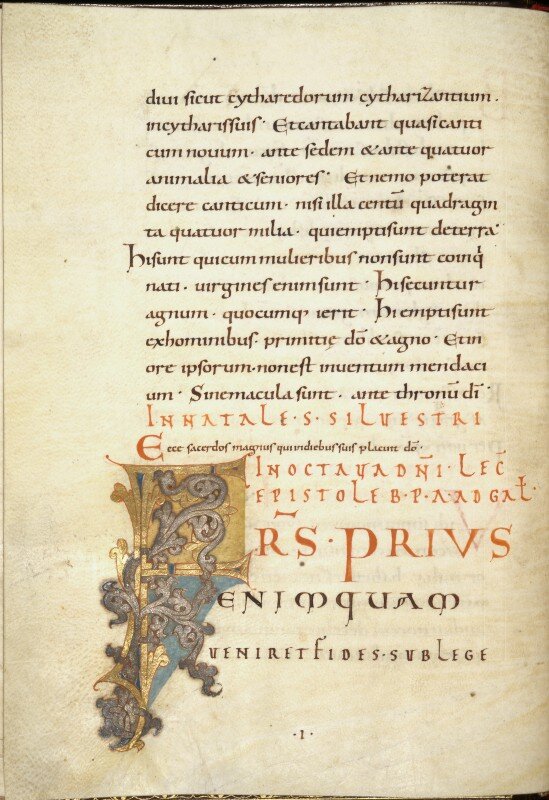 diui sicut cytharedorum cytharizantium ·
incytharissuis · Etcantabant quasicanti
cum nouum · ante sedem &ante quatuor
animalia &seniores · Etnemo poterat
dicere canticum · nisi illa centū quadragin
ta quatuor milia · quiemptisunt deterra ·
hisunt quicum mulieribus nonsunt coinq̇
nati · uirgines enimsunt · hisecuntur
agnum · quocumq; ierit · hi emptisunt
exhominibus · primitię dō &agno · Etin
ore ipsorum · nonest inuentum mendaci
um · Sinemacula sunt · ante thronū dī ·
INNATALE · S · SILUESTRI
Ecce sacerdos magnus quiindiebus suis placuit dō ·
INOCTAUADÑI · LEC̄
EPISTOLE B · P · AADGAŁ ·
FR̄S · PRIUS
ENIMQUAM
UENIRETFIDES · SUBLEGE
· I ·